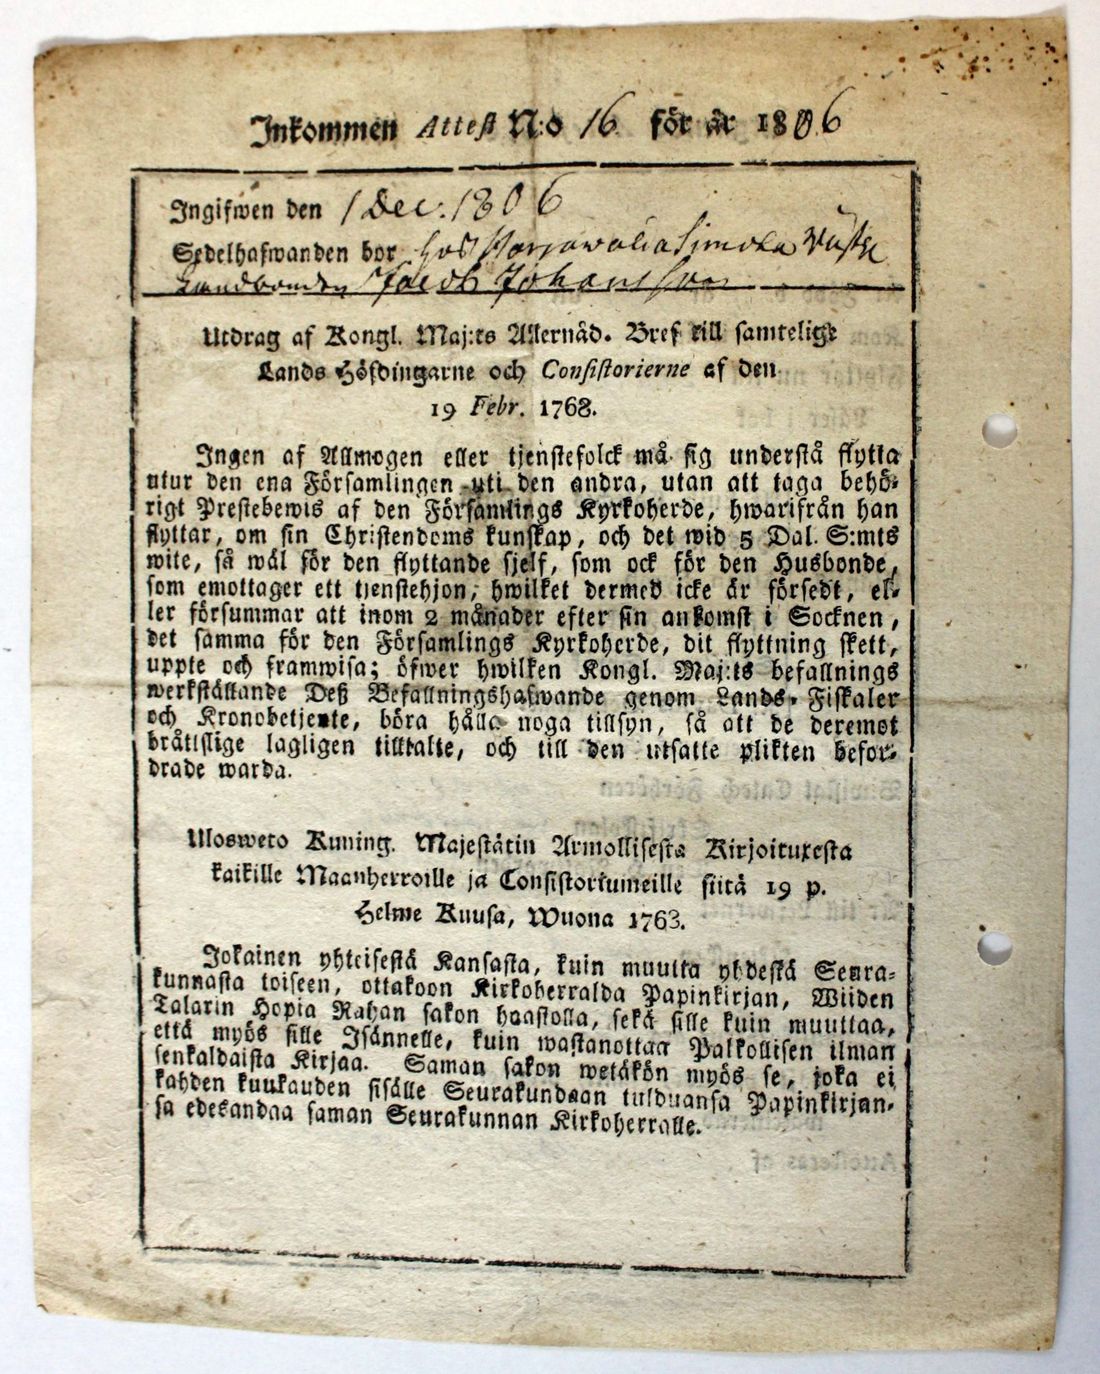 Inkommen Attest N:o 16 för år 1806
Ingifwen den 1 Dec: 1806
Sedelhafwanden bor hos
Landbonden Jacob Johansson
Utdrag af Kongl. Maj:ts Allernåd. Bref till samtelige
Lands Höfdingarne och Consistorierne af den
19 Febr. 1768.
Ingen af Allmogen eller tjenstefolck må sig understå flytta
utur den ena Församlingen uti den andra, utan att taga behö-
rigt Prestebewis af den Församlings Kyrkoherde, hwarifrån han
flyttar, om sin Christendoms kunskap, och det wid 5 Dal. S:mts
wite, så wäl för den flyttande sjelf, som ock för den Husbonde,
som emottager ett tjenstehjon, hwilket dermed icke är försedt, el-
ler försummar att inom 2 månader efter sin ankomst i Socknen,
det samma för den Församlings Kyrkoherde, dit flyttning skett,
uppte och framwisa; öfwer hwilken Kongl. Maj:ts befallnings
werkställande Deß Befallningshafwande genom Lands-Fiskaler
och Kronobetjente, böra hålla noga tillsyn, så att de deremot
bråtislige lagligen tilltalte, och till den utsatte plikten befor-
drade warda.
Ulosweto Kuning. Majestätin Armollisesta Kirjoituxesta
kaikille Maanherroille ja Consistoriumeille siitä 19 p.
Helme Kuusa, Wuona 1763.
Jokainen yhteisestä Kansasta, kuin muutta yhdestä Seura-
kunnasta toiseen, ottakoon Kirkoherralda Papinkirjan, Wiiden
Talarin Hopia Rahan sakon haastolla, sekä sille kuin muuttaa,
että myös sille Isännelle, kuin wastanottaa Palkollisen ilman
senkaldaista Kirjaa. Saman sakon wetäkön myös se, joka ei
kahden kuukauden sisälle Seurakundaan tulduansa Papinkirjan-
sa edesandaa saman Seurakunnan Kirkoherralle.